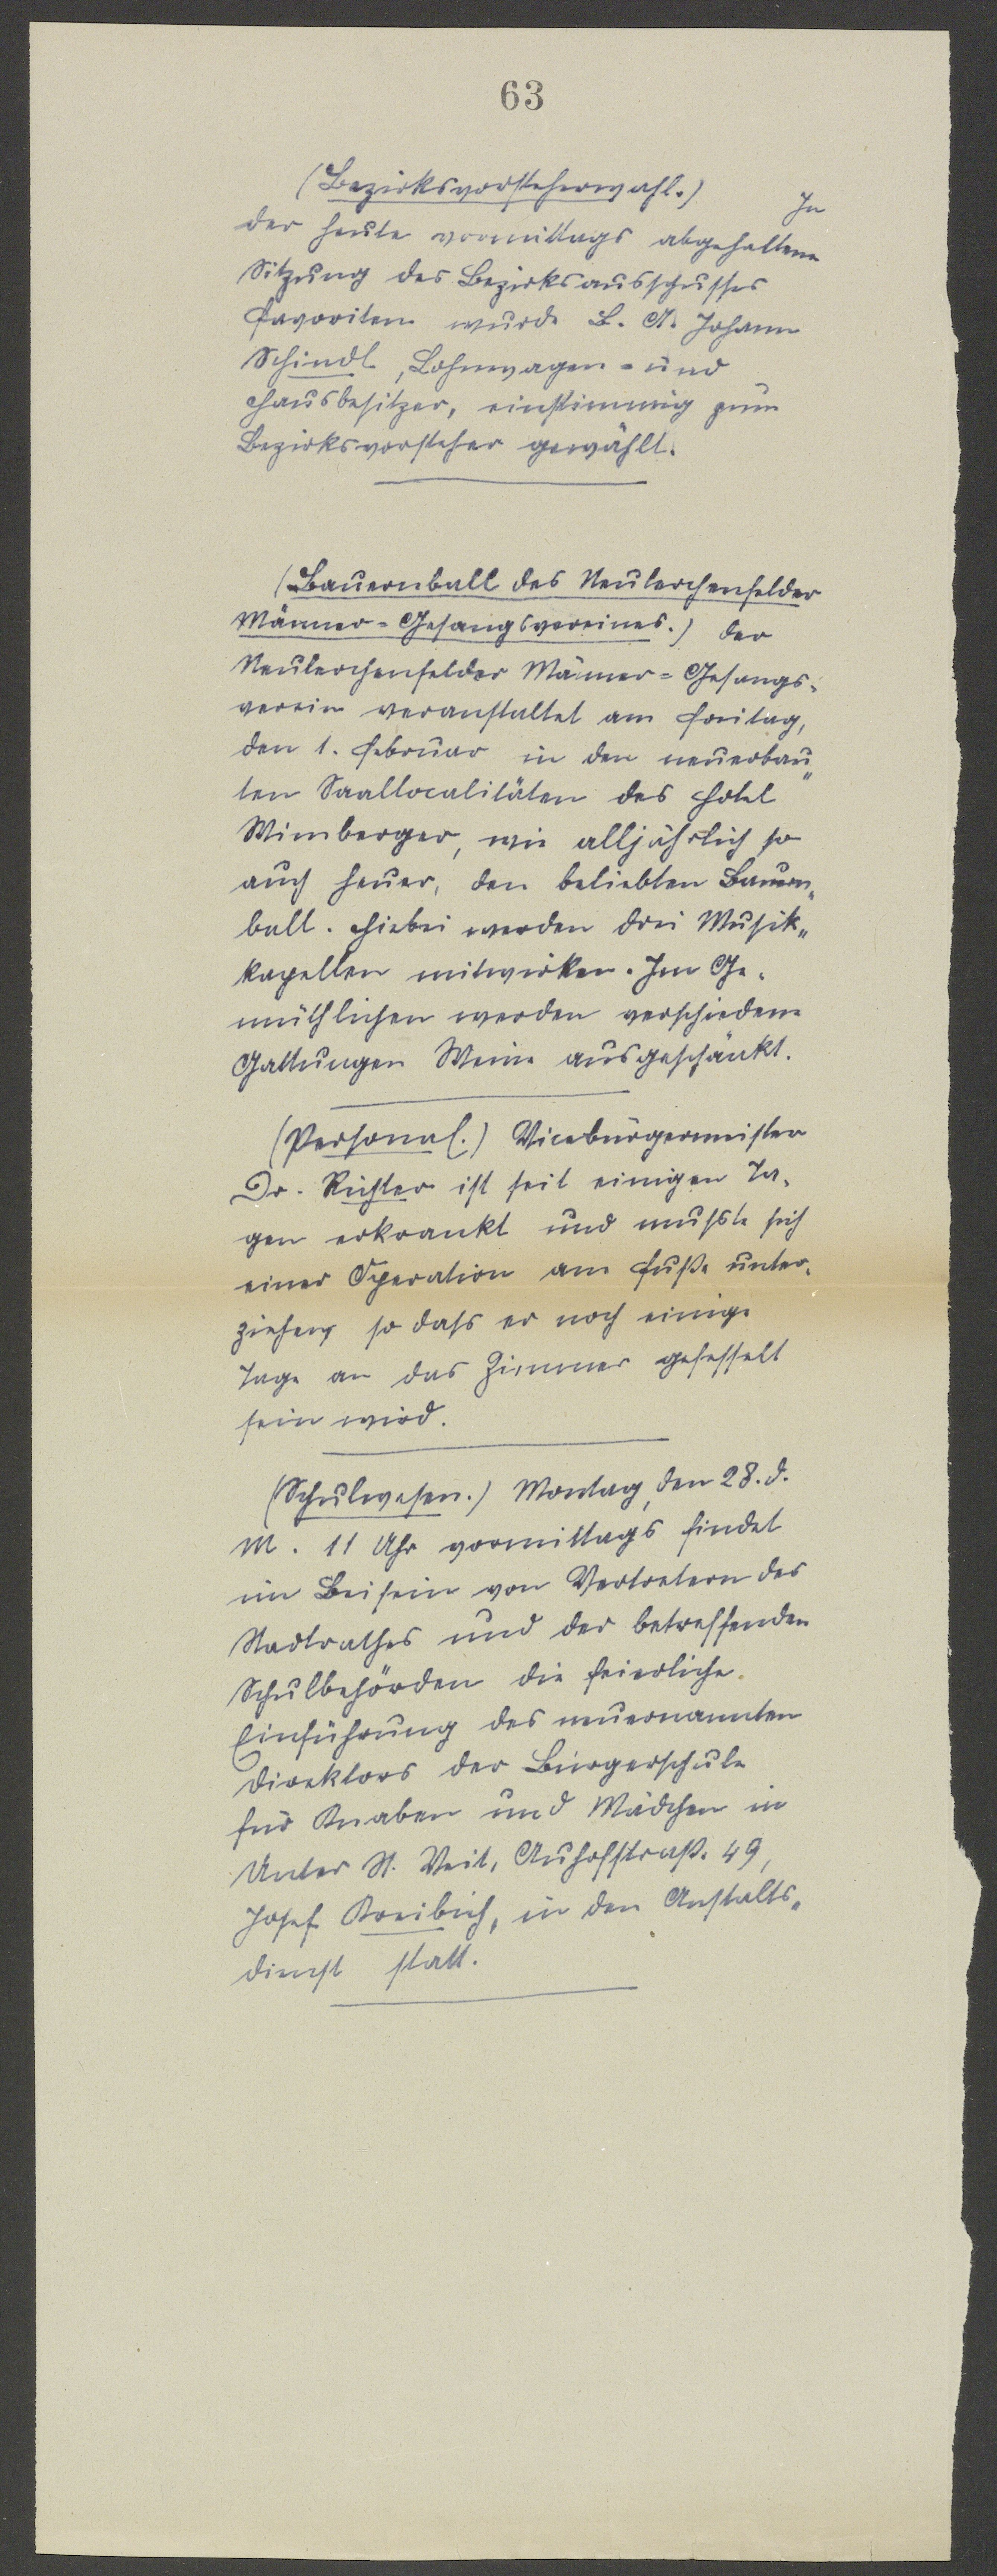 63
(Bezirksvorsteherwahl.) In
der heute vormittags abgehaltenen
Sitzung des Bezirksausschusses
Favoriten wurde B. A. Johann
Schindl, Lohnwagen- und
Hausbesitzer, einstimmig zum
Bezirksvorsteher gewählt.
(Bauernball des Neulerchenfelder
Männer-Gesangsvereines.) Der
Neulerchenfelder Männer-Gesangs-
verein veranstaltet am Freitag,
den 1. Februar in den neuerbau„
ten Saallocalitäten des Hotel
Wimberger, wie alljährlich so
auch heuer, den beliebten Bauern„
ball. Hiebei werden drei Musik„
kapellen mitwirken. Im Ge-
müthlichen werden verschiedene
Gattungen Weine ausgeschänkt.
(Personal.) Vicebürgermeister
Dr. Richter ist seit einigen Ta-
gen erkrankt und mußte sich
einer Operation am Fuße unter-
ziehen, so daß er noch einige
Tage an das Zimmer gefesselt
sein wird.
(Schulwesen.) Montag, den 28. d.
M. 11 Uhr vormittags findet
im Beisein von Vertretern des
Stadtrathes und der betreffenden
Schulbehörden die feierliche
Einführung des neuernannten
Direktors der Bürgerschule
für Knaben und Mädchen in
Unter St. Veit, Auhofstraße 49,
Josef Kreibich, in den Anstalts„
dienst statt.